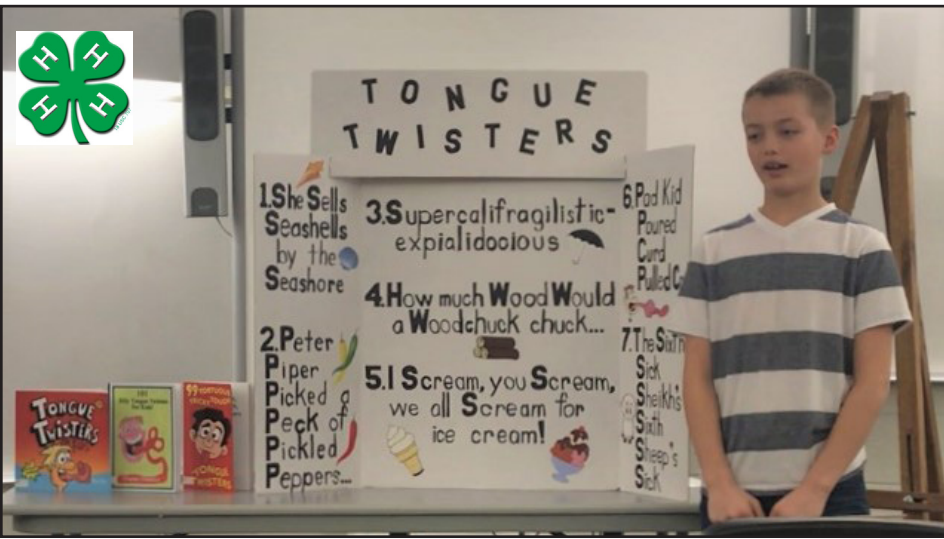 H H
H H
TONGUE
TWISTERS
1.She Sells
Seashells
by the
Seashore
2.Peter
Piper
Picked a
Peck of
Pickled
Peppers...
3.Supercalifragilistic-
expialidocious
4.How much Wood Would
a Woodchuck chuck...
5.I Scream, you Scream,
we all Scream for
ice cream!
6.Pad Kid
Poured
Curd
Pulled C
7.The Sixth
Sick
Sheikh's
Sixth
Sheep's
Sick
TONGUE
TWISTERS
101
Silly Tongue Twisters
For Kids!
99
TONGUE
TWISTERS